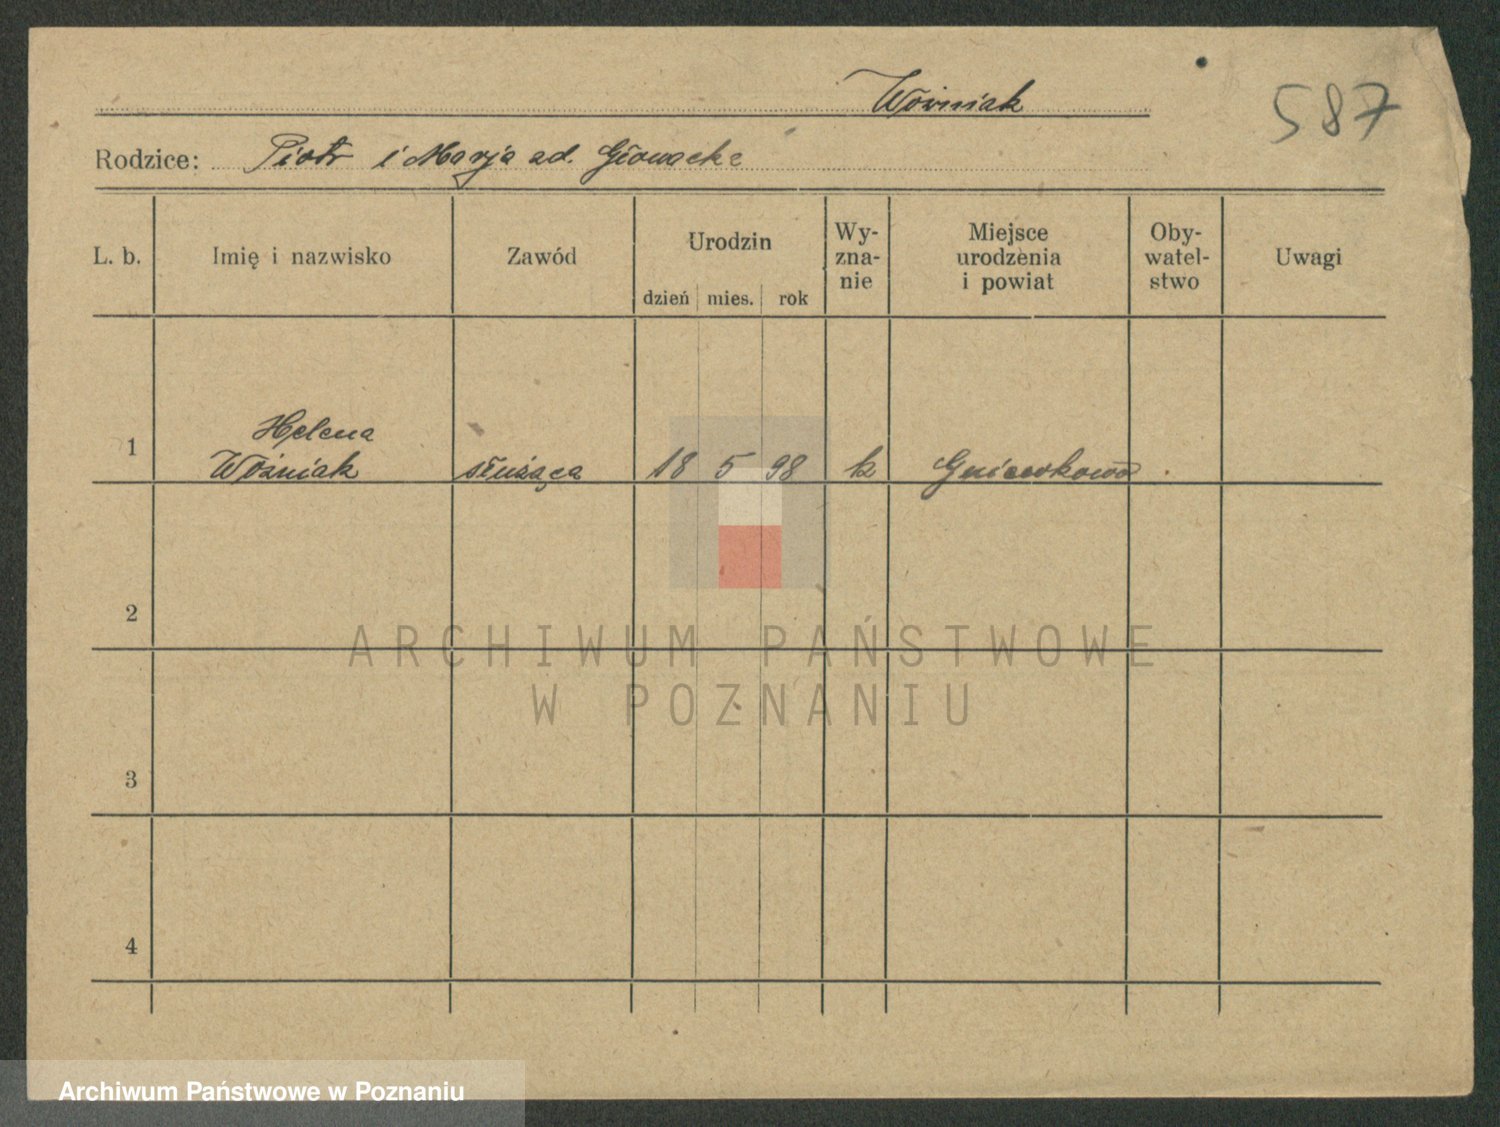 Woźniak
587
Rodzice: Piotr i Marja zd. Głowacka
L. b.
Imię i nazwisko
Zawód
Urodzin
dzień mies. rok
Wy-
zna-
nie
Miejsce
urodzenia
i powiat
Oby-
watel-
stwo
Uwagi
1
Helena
Woźniak
służąca
18 5 98
k
Gniewkowo
2
3
4
ARCHIWUM PAŃSTWOWE
W POZNANIU
Archiwum Państwowe w Poznaniu